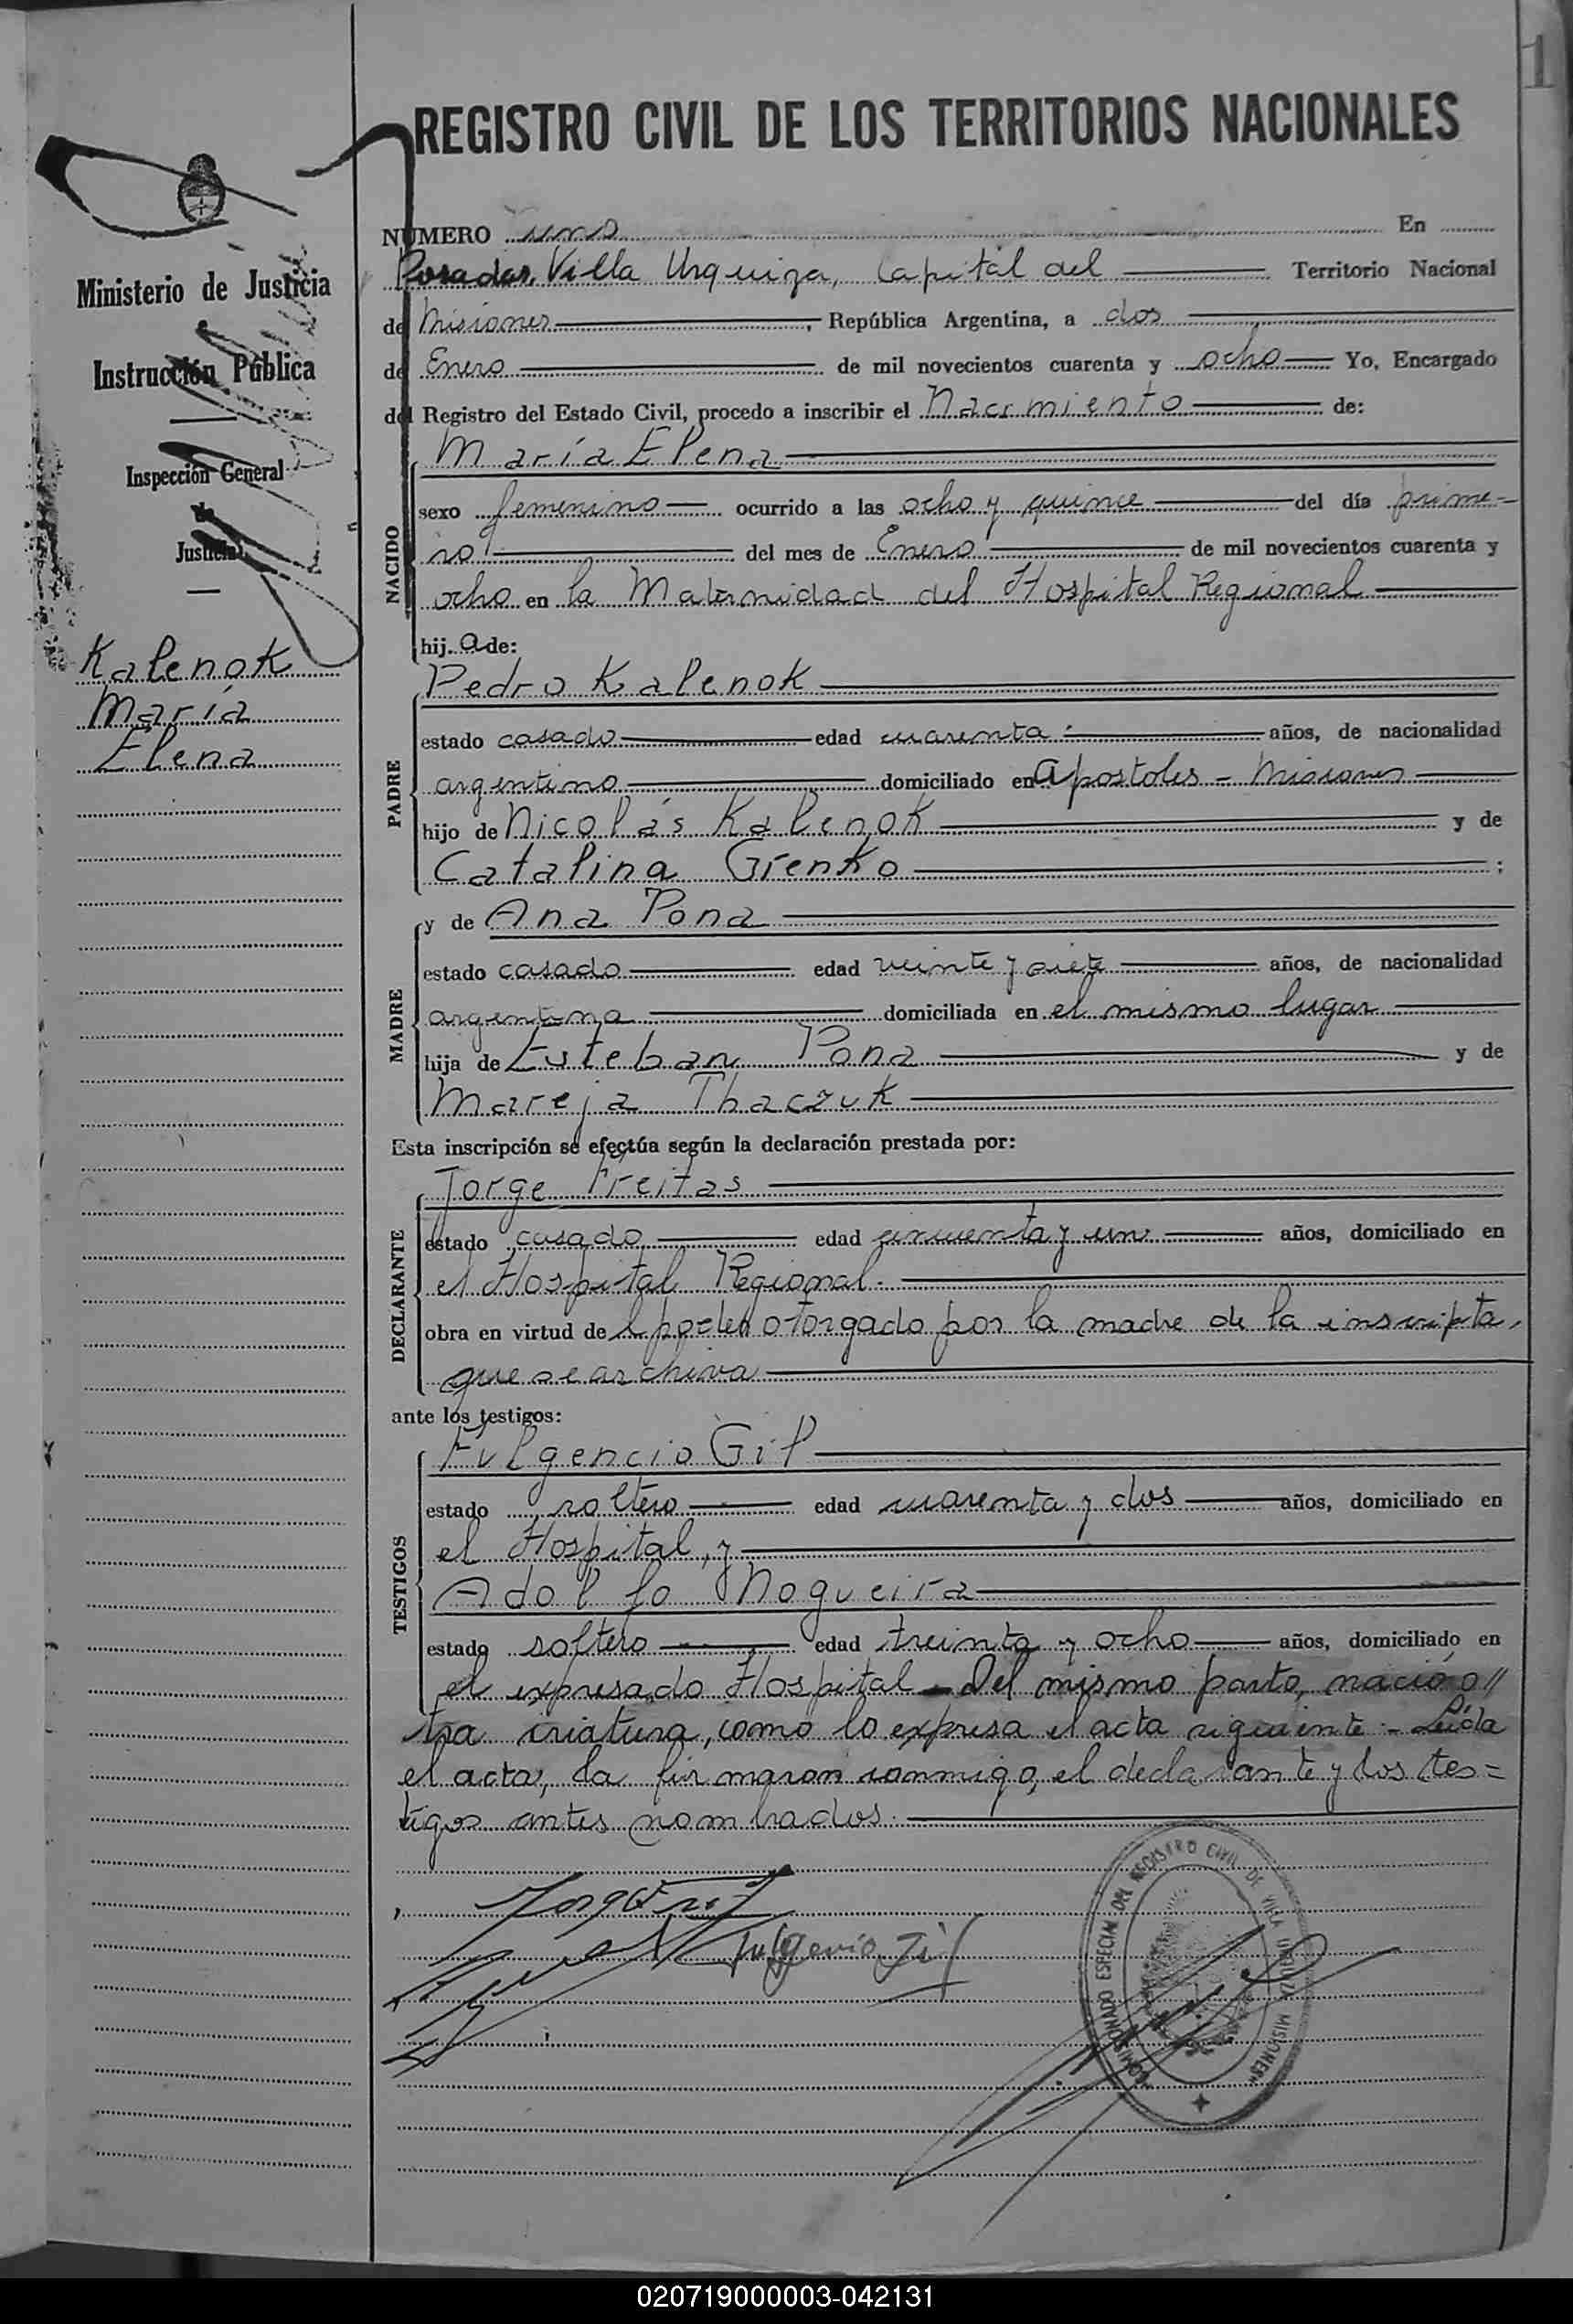 1
REGISTRO CIVIL DE LOS TERRITORIOS NACIONALES
Ministerio de Justicia
Instrucción Pública
Inspección General
de
Justicia
Kalenok
María
Elena
NUMERO uno En
Posadas, Villa Urquiza, Capital del Territorio Nacional
de Misiones, República Argentina, a dos
de Enero de mil novecientos cuarenta y ocho Yo, Encargado
del Registro del Estado Civil, procedo a inscribir el Nacimiento de:
NACIDO
María Elena
sexo femenino ocurrido a las ocho y quince del día prime=
ro del mes de Enero de mil novecientos cuarenta y
ocho en la Maternidad del Hospital Regional
hij a de:
PADRE
Pedro Kalenok
estado casado edad cuarenta años, de nacionalidad
argentino domiciliado en Apostoles - Misiones
hijo de Nicolás Kalenok y de
Catalina Grenko ;
MADRE
y de Ana Pona
estado casado edad veinte y siete años, de nacionalidad
argentina domiciliada en el mismo lugar
hija de Esteban Pona y de
Mareja Thaczuk
Esta inscripción se efectúa según la declaración prestada por:
DECLARANTE
Jorge Freitas
estado casado edad cincuenta y un años, domiciliado en
el Hospital Regional.
obra en virtud de l poder otorgado por la madre de la inscripta,
que se archiva
ante los testigos:
TESTIGOS
Fulgencio Gil
estado soltero edad cuarenta y dos años, domiciliado en
el Hospital, y
Adolfo Nogueira
estado soltero edad treinta y ocho años, domiciliado en
el expresado Hospital - Del mismo parto, nació o//
tra criatura, como lo expresa el acta siguiente.- Leída
el acta, la firmaron conmigo, el declarante y los tes=
tigos antes nombrados.
Fulgencio Gil
COMISIONADO ESPECIAL DEL REGISTRO CIVIL DE VILLA URQUIZA MISIONES
020719000003-042131